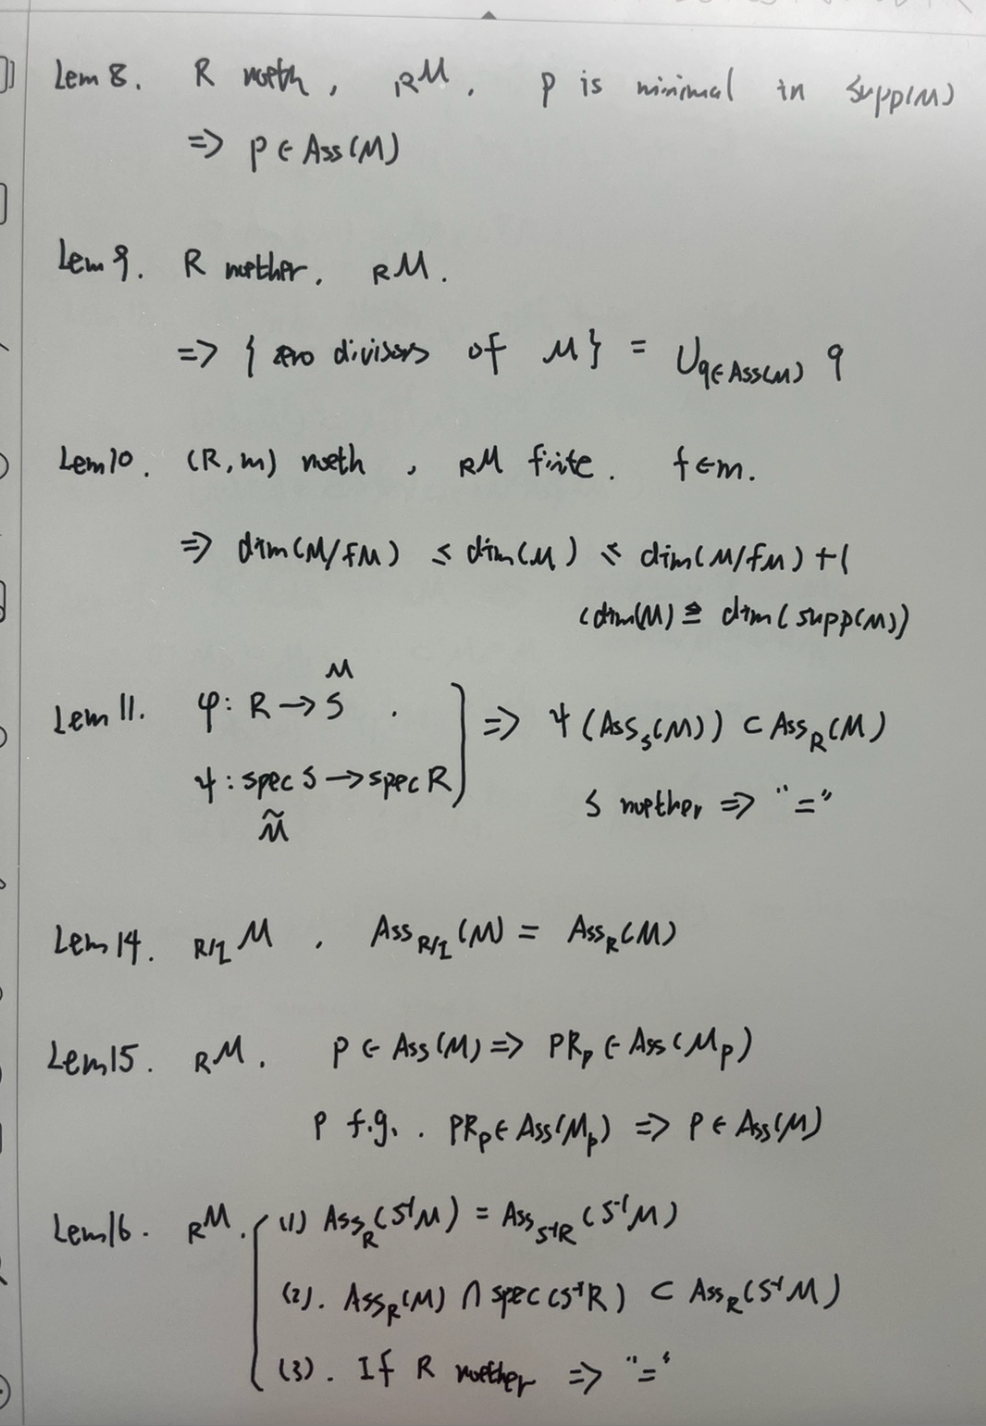 Lem 8. R noeth, _R M. p is minimal in supp(M)
⇒ p ∈ Ass(M)
Lem 9. R noether. _R M.
⇒ { zero divisors of M } = ∪_{q∈Ass(M)} q
Lem 10. (R, m) noeth, _R M finite. f ∈ m.
⇒ dim(M/fM) ≤ dim(M) ≤ dim(M/fM) + 1
(dim(M) ≙ dim(supp(M))
M
Lem 11. φ: R → S. ⇒ ψ(Ass_S(M)) ⊂ Ass_R(M)
ψ: spec S → spec R S noether ⇒ "="
M̃
Lem 14. _{R/I} M. Ass_{R/I}(M) = Ass_R(M)
Lem 15. _R M. p ∈ Ass(M) ⇒ pR_p ∈ Ass(M_p)
p f.g.. pR_p ∈ Ass(M_p) ⇒ p ∈ Ass(M)
Lem 16. _R M. (1) Ass_R(S⁻¹M) = Ass_{S⁻¹R}(S⁻¹M)
(2). Ass_R(M) ∩ spec(S⁻¹R) ⊂ Ass_R(S⁻¹M)
(3). If R noether ⇒ "="